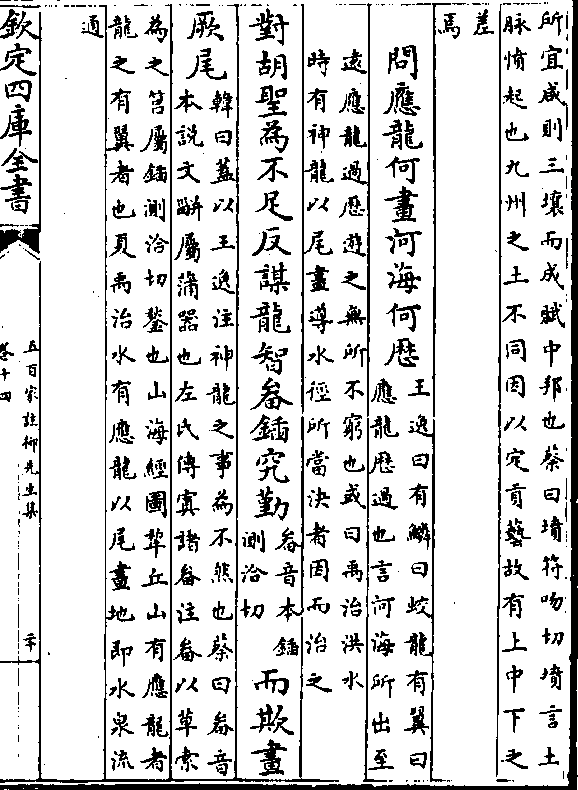 所宜咸則三壤而成賦中邦也蔡曰墳符吻切墳言土
脉憤起也九州之土不同因以定貢藝故有上中下之
差
焉
問應龍何畫河海何歴
王逸曰有鱗曰蛟龍有翼曰
應龍歴過也言河海所出至
遠應龍過歴遊之無所不窮也或曰禹治洪水
時有神龍以尾畫導水徑所當決者因而治之
對胡聖為不足反謀龍智畚鍤究勤
畚音本鍤
測洽切
而欺畫
厥尾
韓曰蓋以王逸注神龍之事為不然也蔡曰畚音
本説文㽕屬蒲器也左氏傳寘諸畚注畚以草索
為之筥屬鍤測洽切鍫也山海經圖犂丘山有應龍者
龍之有翼者也夏禹治水有應龍以尾畫地即水泉流
通
欽定四庫全書
五百家註栁先生集
卷十四
二十